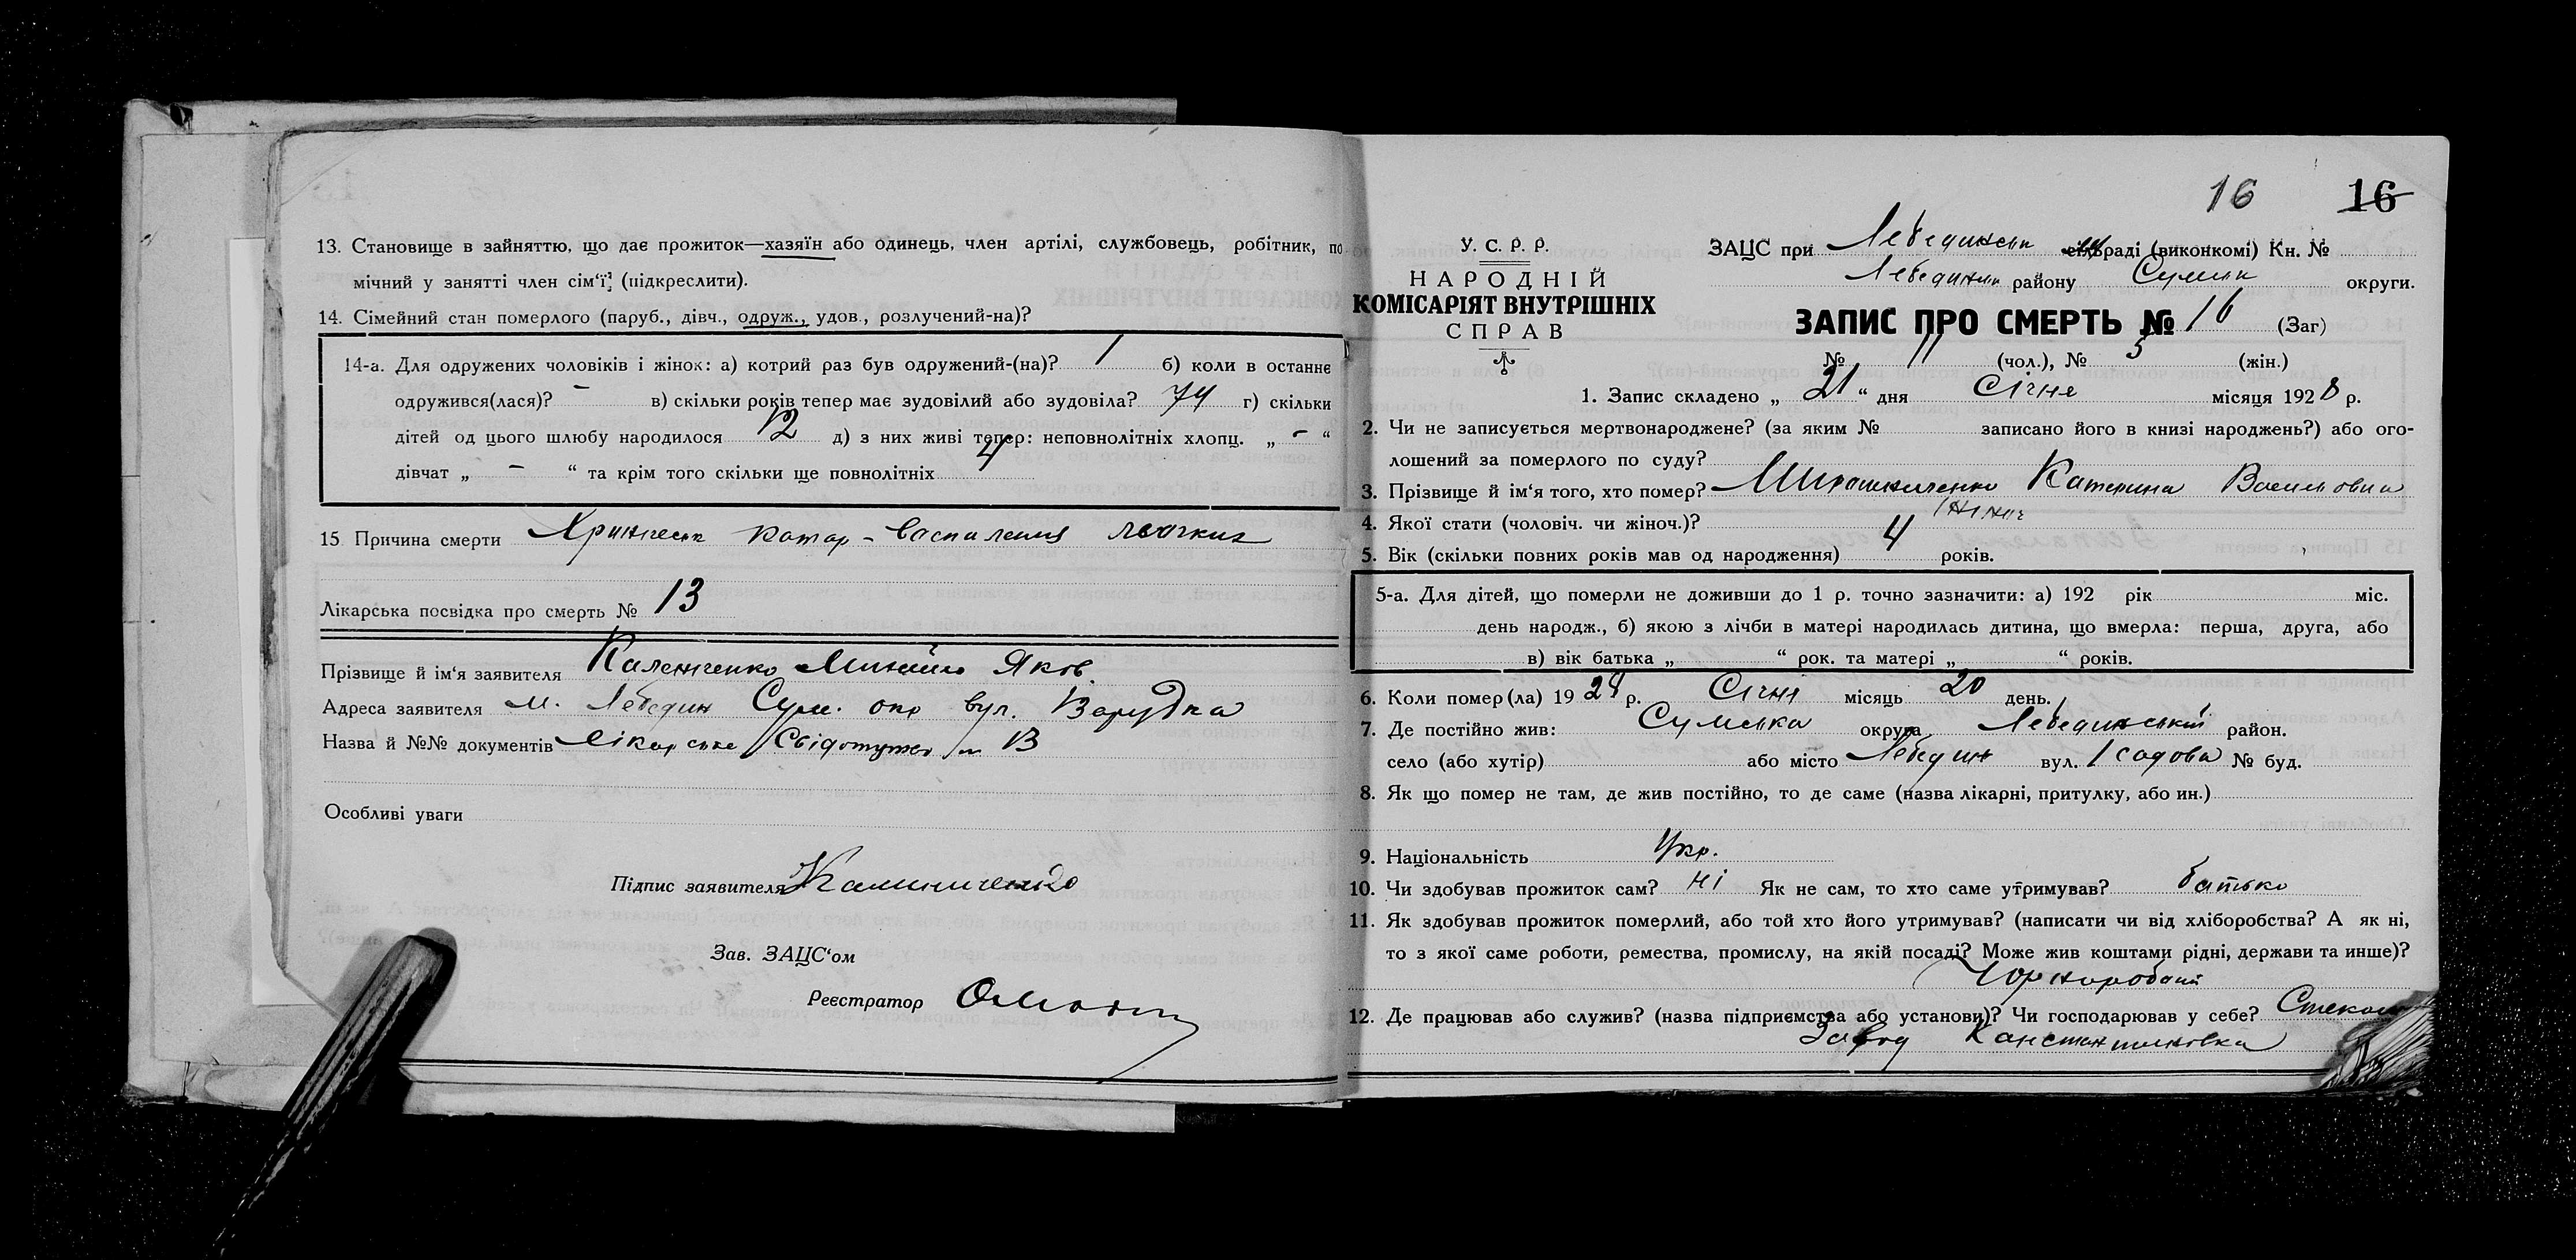 13. Становище в зайняттю, що дає прожиток—хазяїн або одинець, член артілі, службовець, робітник, по
мічний у занятті член сім'ї; (підкреслити).
14. Сімейний стан померлого (паруб., дівч., одруж., удов., розлучений-на)?
14-а. Для одружених чоловіків і жінок: а) котрий раз був одружений-(на)? 1 б) коли в останнє
одружився(лася)? - в) скільки років тепер має зудовілий або зудовіла? 74 г) скільки
дітей од цього шлюбу народилося 12 д) з них живі тепер: неповнолітніх хлопц. „ - “
дівчат „ - “ та крім того скільки ще повнолітніх 4
15 Причина смерти катар - Воспаление
Лікарська посвідка про смерть № 13
Прізвище й ім'я заявителя Каленіченко Михайло Яков.
Адреса заявителя м. Лебедин Сум. окр вул.
Назва й №№ документів Лікарське № 13
Особливі уваги
Підпис заявителя Калиниченко
Зав. ЗАЦС'ом
Реєстратор
16 16
У. С. Р. Р.
НАРОДНІЙ
КОМІСАРІЯТ ВНУТРІШНІХ
СПРАВ
ЗАЦС при Лебединськ сільраді (виконкомі) Кн. №
Лебединськ району Сумськ округи.
ЗАПИС ПРО СМЕРТЬ № 16 (Заг)
№ 11 (чол.), № 5 (жін.)
1. Запис складено „ 21 “ дня Січня місяця 1928 р.
2. Чи не записується мертвонароджене? (за яким № записано його в книзі народжень?) або ого-
лошений за померлого по суду?
3. Прізвище й ім'я того, хто помер? Мирошниченко Катерина Васильовна
4. Якої стати (чоловіч. чи жіноч.)? жіноч
5. Вік (скільки повних років мав од народження) 4 років.
5-а. Для дітей, що померли не доживши до 1 р. точно зазначити: а) 192 рік міс.
день народж., б) якою з лічби в матері народилась дитина, що вмерла: перша, друга, або
в) вік батька „ “ рок. та матері „ “ років.
6. Коли помер(ла) 1928 р. Січні місяць 20 день.
7. Де постійно жив: Сумська округа Лебединський район.
село (або хутір) або місто Лебедин вул. 1 садова № буд.
8. Як що помер не там, де жив постійно, то де саме (назва лікарні, притулку, або ин.)
9. Національність Укр.
10. Чи здобував прожиток сам? ні Як не сам, то хто саме утримував? батько
11. Як здобував прожиток померлий, або той хто його утримував? (написати чи від хліборобства? А як ні,
то з якої саме роботи, ремества, промислу, на якій посаді? Може жив коштами рідні, держави та инше)?
Чорноробочий
12. Де працював або служив? (назва підприємства або установи)? Чи господарював у себе? Стекол
Завод Канстантиновка